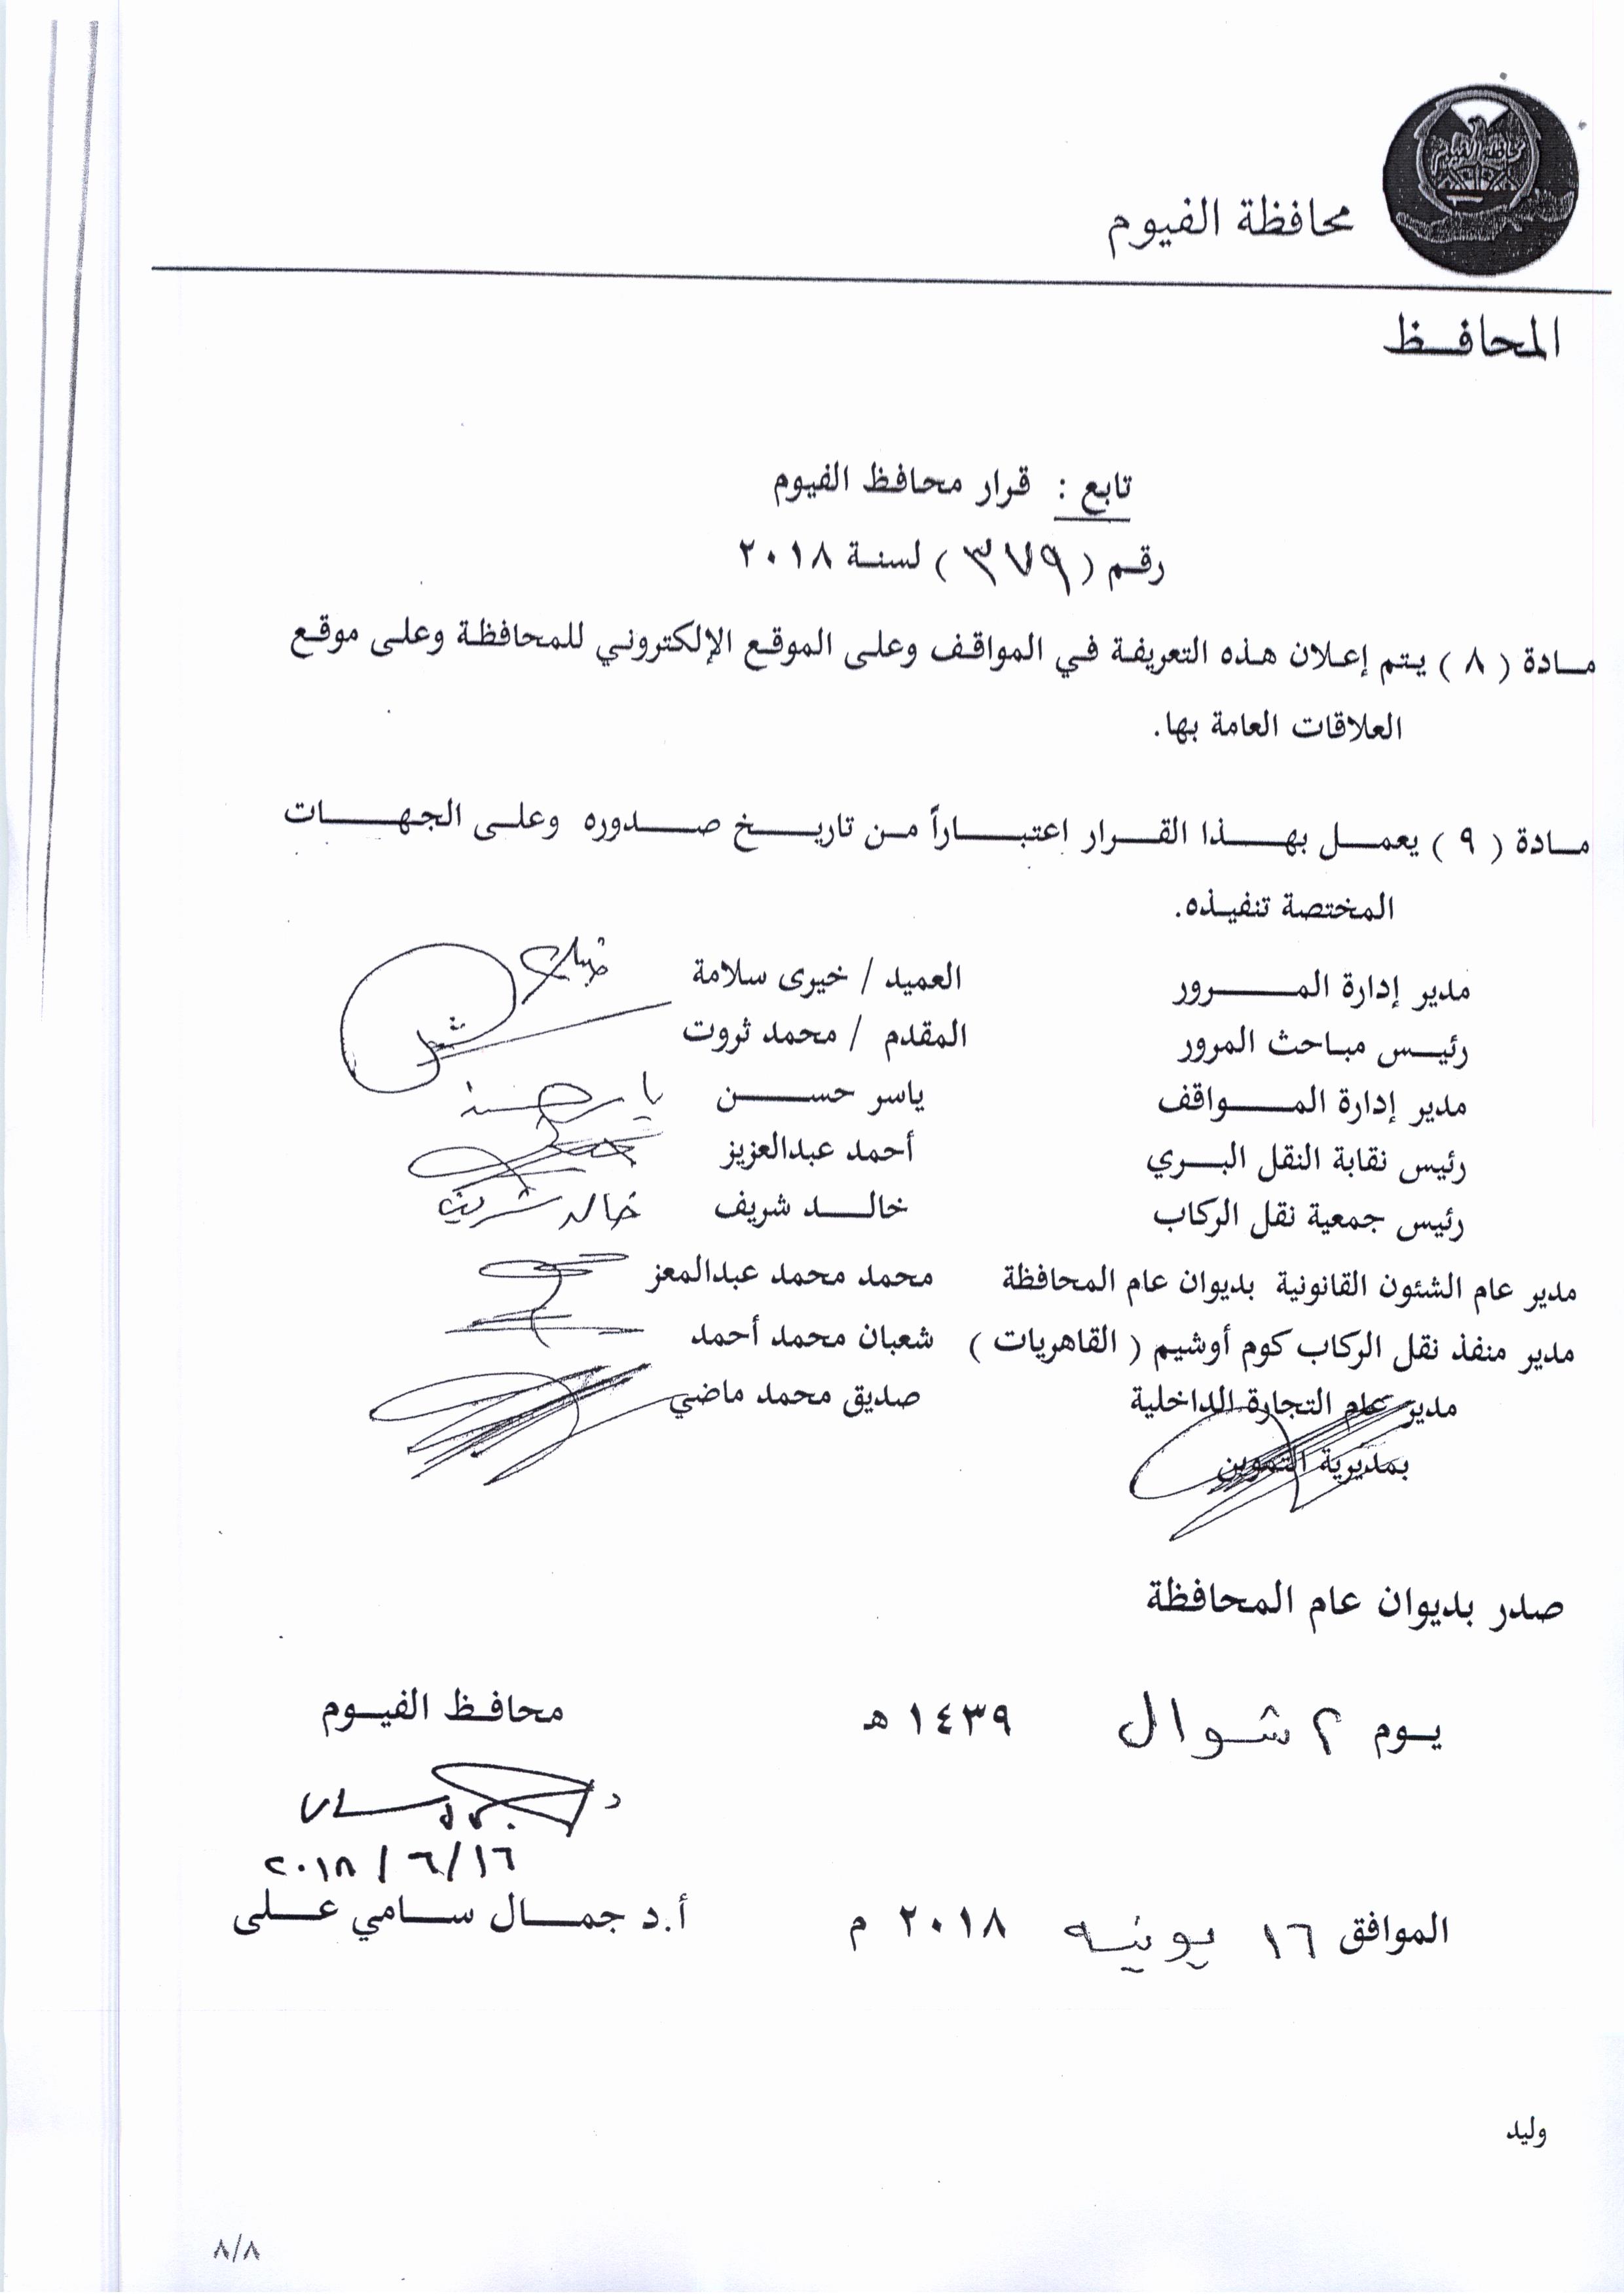 محافظة الفيوم
محافظة الفيوم
المحافـــظ
تابع : قرار محافظ الفيوم
رقم ( ٣٧٩ ) لسنة ٢٠١٨
مادة ( ٨ ) يتم إعلان هذه التعريفة في المواقف وعلى الموقع الإلكتروني للمحافظة وعلى موقع
العلاقات العامة بها.
مادة ( ٩ ) يعمل بهذا القرار اعتباراً من تاريخ صدوره وعلى الجهات
المختصة تنفيذه.
مدير إدارة المرور العميد / خيرى سلامة
رئيس مباحث المرور المقدم / محمد ثروت
مدير إدارة المواقف ياسر حسن ياسر حسن
رئيس نقابة النقل البري أحمد عبدالعزيز
رئيس جمعية نقل الركاب خالد شريف خالد شريف
مدير عام الشئون القانونية بديوان عام المحافظة محمد محمد عبدالمعز
مدير منفذ نقل الركاب كوم أوشيم ( القاهريات ) شعبان محمد أحمد
مدير عام التجارة الداخلية صديق محمد ماضي
بمديرية التموين
صدر بديوان عام المحافظة
يوم ٢ شوال ١٤٣٩ هـ محافظ الفيوم
٢٠١٨/٦/١٦
الموافق ١٦ يونيه ٢٠١٨ م أ.د جمال سامي على
وليد
٨/٨